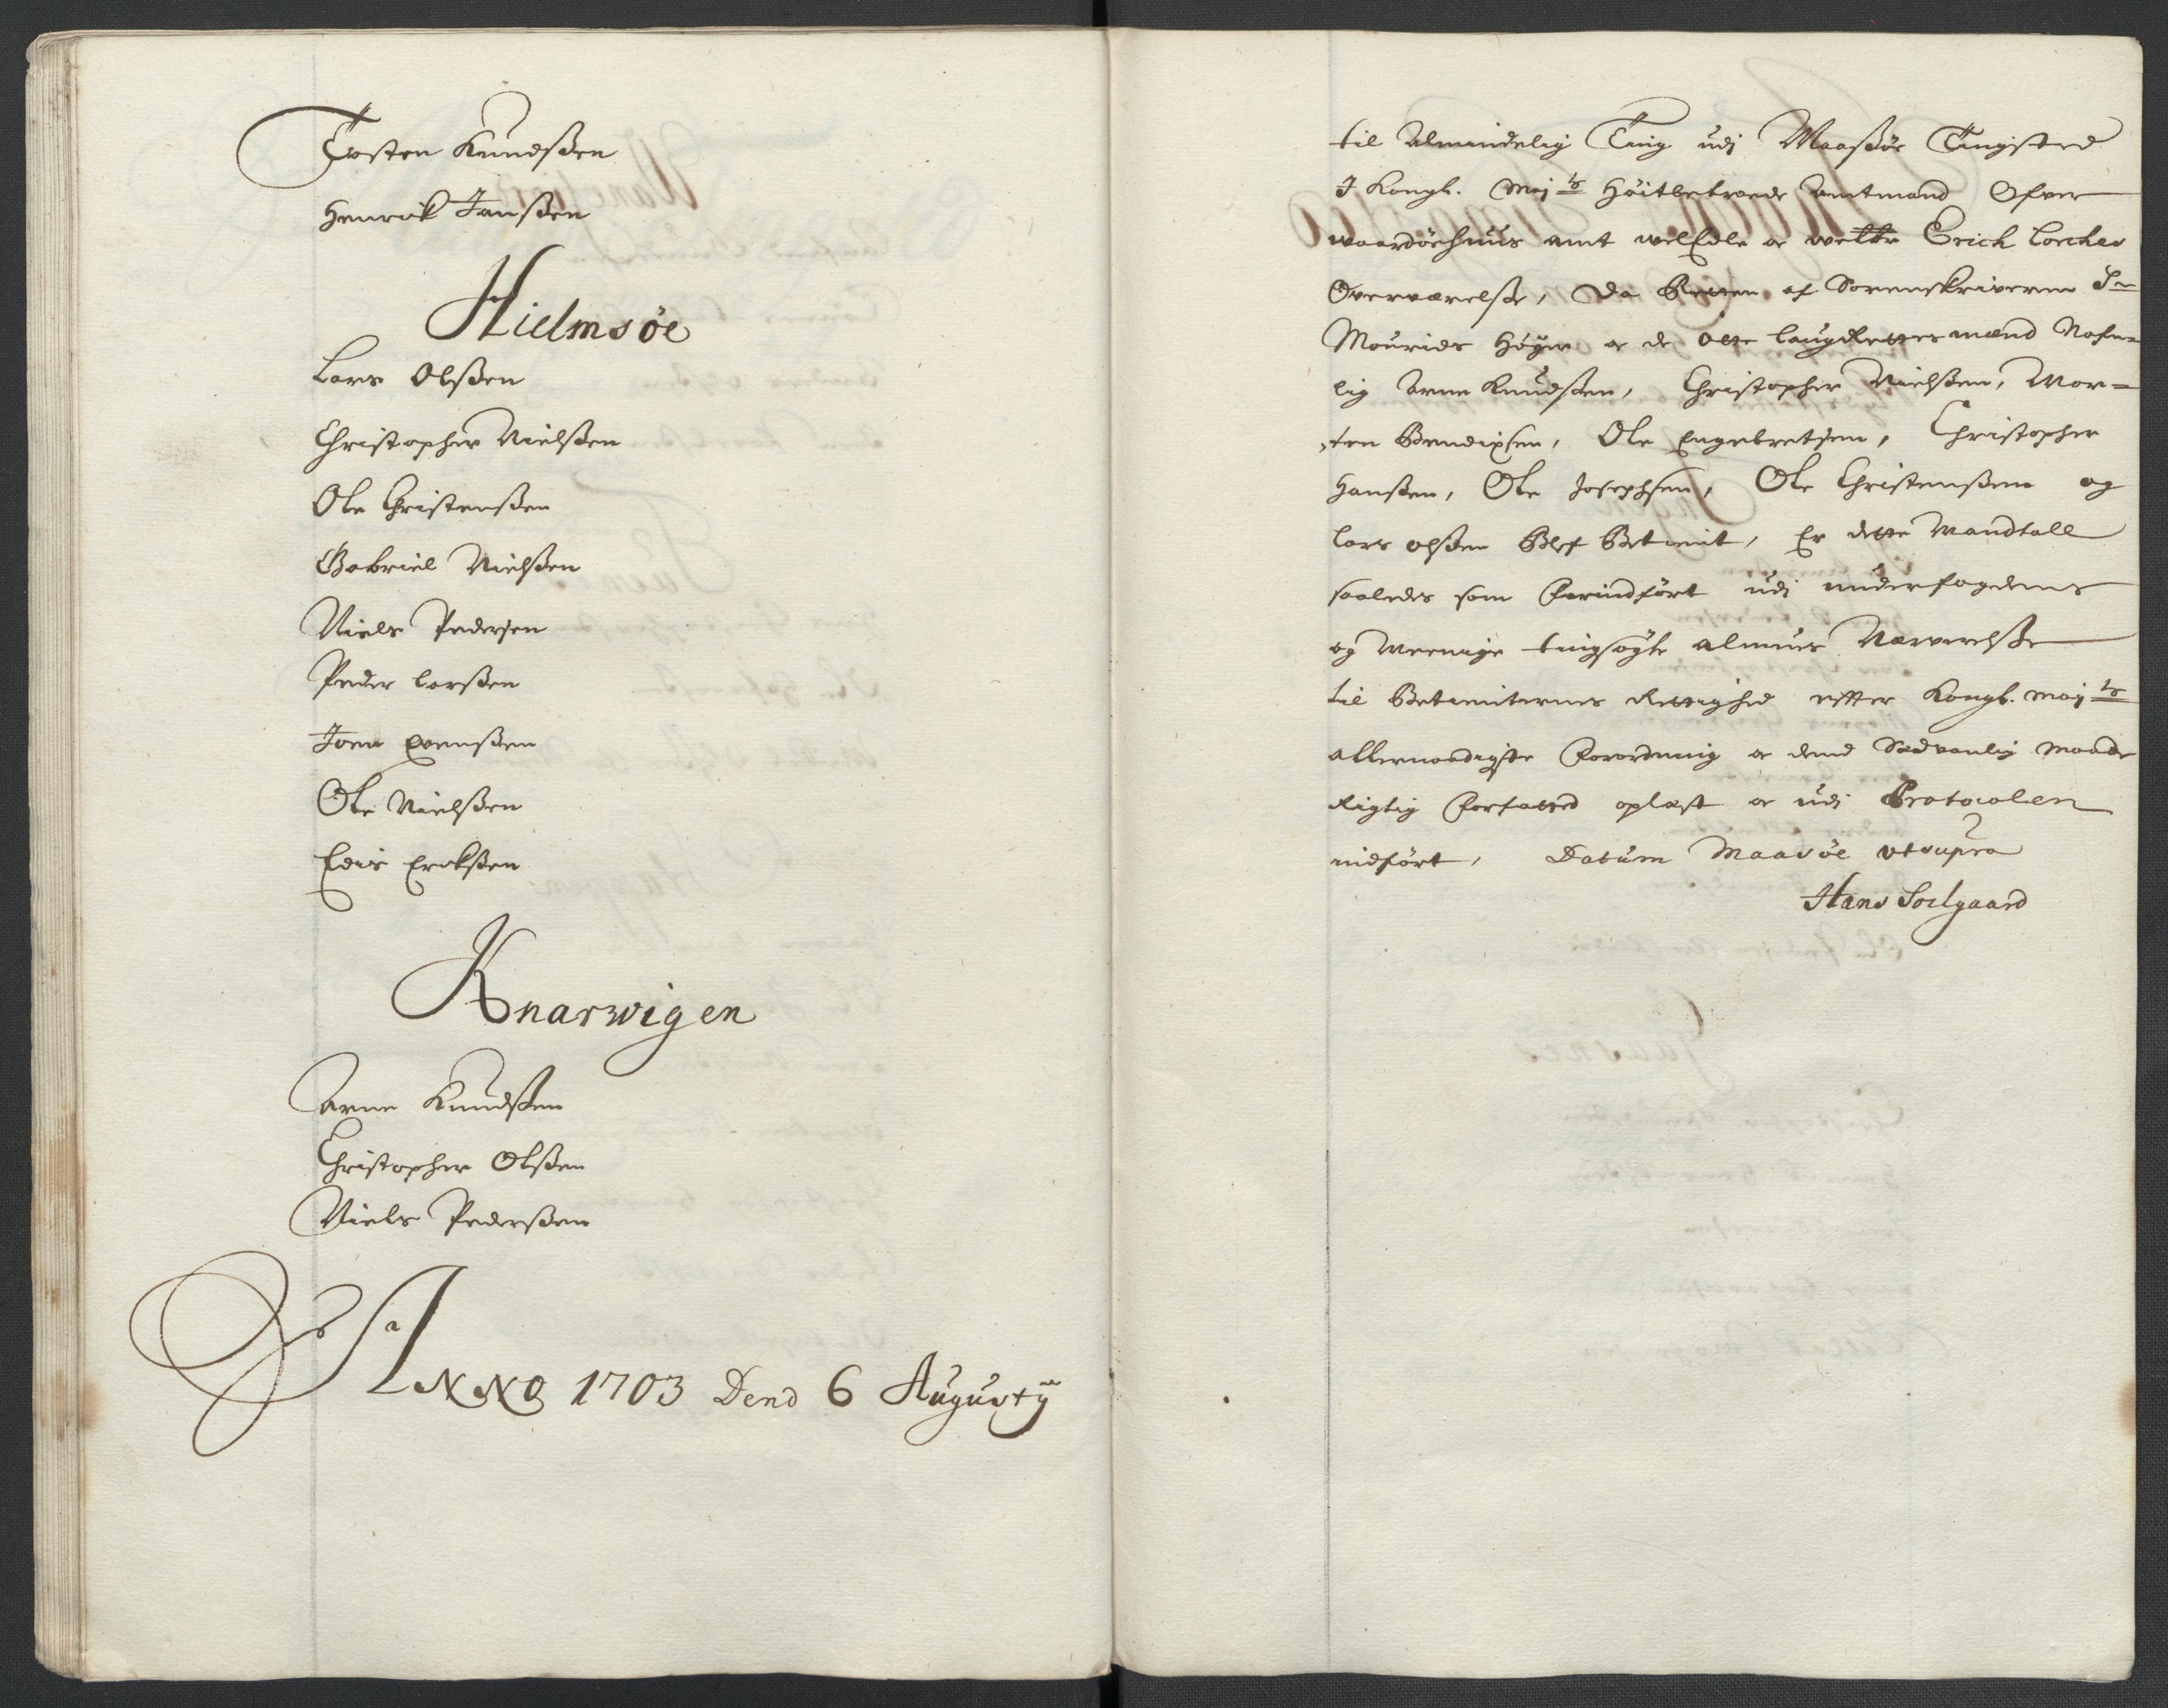 Tosten Knudsßen
Henrick Jansßen
Hielmsöe
Lars Olsßen
Christopher Nielsßen
Ole Christensßen
Gabriel Nielsßen
Niels Pedersen
Peder Larsßen
Joen Evensßen
Ole Nielsßen
Edis Ericksßen
Knarwigen
Arne Knudsßen
Christopher Olsßen
Niels Pedersßen
ANNO 1703 Dend 6 Augusty
til Almindelig Ting udj Maassöe Tingsted
I Kongl. Maj ts Höitbetroede Amtmand Ofver
Waardöehuus Amt welEdle oc wette Erich Lorches
Overværelsße, Da Retten af Sorenskriveren Sr
Mourids Höyer oc de Otte LaugRettesmænd Nafn-
lig Arne Knudsßen, Christopher Nielsßen, Mor-
ten Bendixsen, Ole Engebretsen, Christopher
Hansßen, Ole Josephsen, Ole Christensßen og
Lars Olsßen Blef Betient, Er dette Mandtall
saaledes som forindfört udj underfogedens
og Meenige tingsögte Almues Nærverelsße
til Betienternes Rettighed effter Kongl. May ts
allernaadigste Forordning oc dend Sædvanlig Maade
Rigtig forfatted oplæst oc udj Protocolen
indfört, Datum Maasöe utsupra
Hans Soelgaard